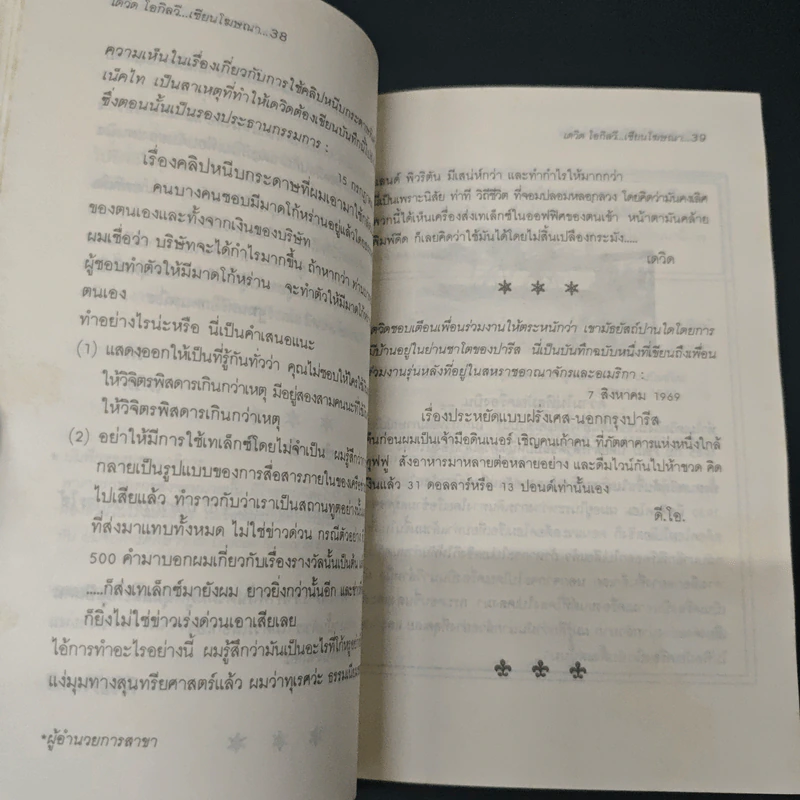 เดวิด โอกิลวี...เขียนโฆษณา...38
ความเห็นในเรื่องเกี่ยวกับการใช้คลิปหนีบกระดาษ
เน็คไท เป็นสาเหตุที่ทำให้เดวิดต้องเขียนบันทึกนี้
ซึ่งตอนนั้นเป็นรองประธานกรรมการ :
15
เรื่องคลิปหนีบกระดาษที่ผมเอามาใช้
คนบางคนชอบมีมาดโก้หร่านอยู่แล้ว
ของตนเองและทั้งจากเงินของบริษัท
ผมเชื่อว่า บริษัทจะได้กำไรมากขึ้น ถ้าหากว่า
ผู้ชอบทำตัวให้มีมาดโก้หร่าน จะทำตัวให้มีมาด
ตนเอง
ทำอย่างไรน่ะหรือ นี่เป็นคำเสนอแนะ
(1) แสดงออกให้เป็นที่รู้กันทั่วว่า คุณไม่ชอบให้ใคร
ให้วิจิตรพิสดารเกินกว่าเหตุ มีอยู่สองสามคนนะที่
ให้วิจิตรพิสดารเกินกว่าเหตุ
(2) อย่าให้มีการใช้เทเล็กซ์โดยไม่จำเป็น ผมรู้สึก
กลายเป็นรูปแบบของการสื่อสารภายในของ
ไปเสียแล้ว ทำราวกับว่าเราเป็นสถานทูตอย่างนั้น
ที่ส่งมาแทบทั้งหมด ไม่ใช่ข่าวด่วน กรณีตัวอย่าง
500 คำมาบอกผมเกี่ยวกับเรื่องรางวัลนั้นเป็นต้น
.....ก็ส่งเทเล็กซ์มายังผม ยาวยิ่งกว่านั้นอีก และ
ก็ยิ่งไม่ใช่ข่าวเร่งด่วนเอาเสียเลย
ไอ้การทำอะไรอย่างนี้ ผมรู้สึกว่ามันเป็นอะไรที่
แง่มุมทางสุนทรียศาสตร์แล้ว ผมว่าทุเรศว่ะ
*ผู้อำนวยการสาขา
เดวิด โอกิลวี...เขียนโฆษณา...39
แลนด์ พิวริตัน มีเสน่ห์กว่า และทำกำไรให้มากกว่า
นี่เป็นเพราะนิสัย ท่าที วิถีชีวิต ที่จอมปลอมหลอกลวง โดยคิดว่ามันคงเลิศ
พวกนี้ได้เห็นเครื่องส่งเทเล็กซ์ในออฟฟิศของตนเข้า หน้าตามันคล้าย
พิมพ์ดีด ก็เลยคิดว่าใช้มันได้โดยไม่สิ้นเปลืองกระมัง.....
เดวิด
เดวิดชอบเตือนเพื่อนร่วมงานให้ตระหนักว่า เขามัธยัสถ์ปานใดโดยการ
มีบ้านอยู่ในย่านชาโตของปารีส นี่เป็นบันทึกฉบับหนึ่งที่เขียนถึงเพื่อน
ร่วมงานรุ่นหลังที่อยู่ในสหราชอาณาจักรและอเมริกา :
7 สิงหาคม 1969
เรื่องประหยัดแบบฝรั่งเศส-นอกกรุงปารีส
คืนก่อนผมเป็นเจ้ามือดินเนอร์ เชิญคนเก้าคน ที่ภัตตาคารแห่งหนึ่งใกล้
สั่งอาหารมาหลายต่อหลายอย่าง และดื่มไวน์กันไปห้าขวด คิด
เงินแล้ว 31 ดอลลาร์หรือ 13 ปอนด์เท่านั้นเอง
ดี.โอ.